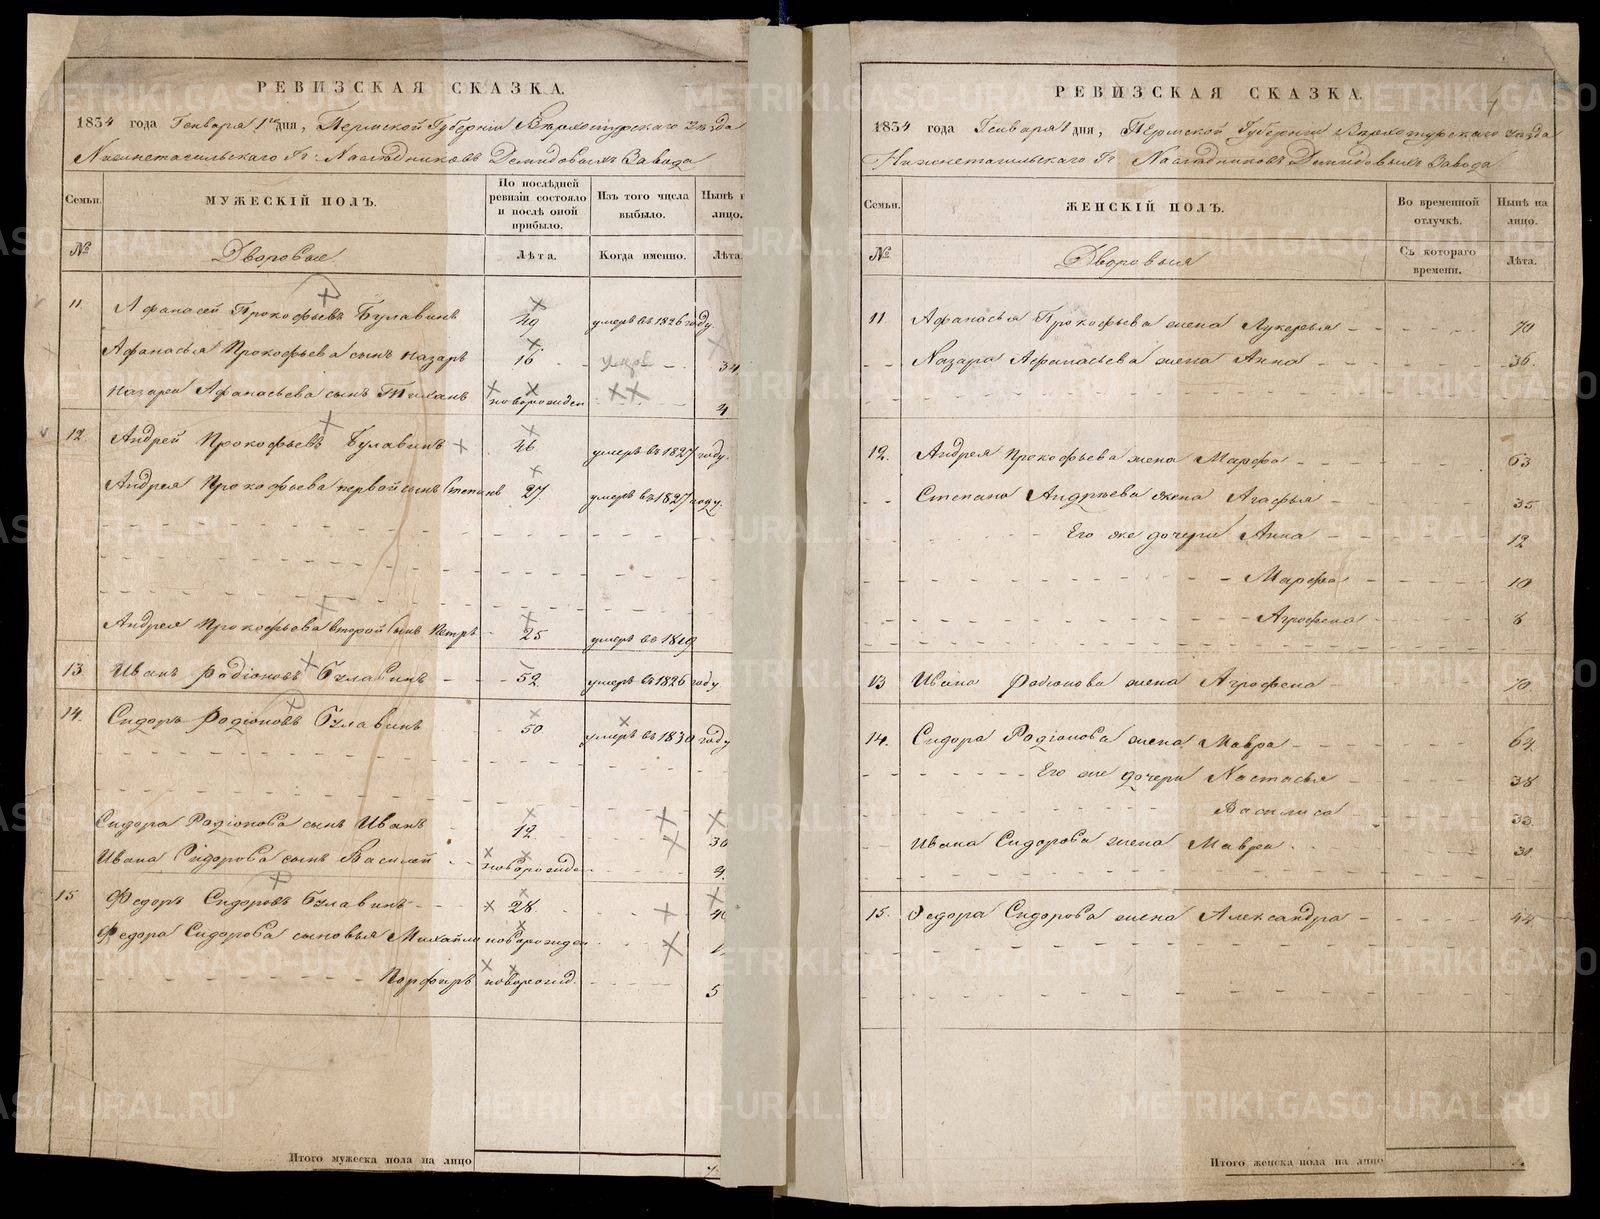 РЕВИЗСКАЯ СКАЗКА.
1834 года Генваря 1го дня, Пермской Губерніи Верхотурскаго уѣзда
Нижнетагильскаго Гг. Наслѣдниковъ Демидовыхъ Завода
Семьи. МУЖЕСКІЙ ПОЛЪ. По послѣдней ревизіи состояло и послѣ оной прибыло. Изъ того числа выбыло. Нынѣ на лицо.
№ Дворовые Лѣта. Когда именно. Лѣта.
11 Афанасей Прокофьевъ Булавинъ 49 умеръ въ 1826 году.
Афанасья Прокофьева сынъ Назаръ 16 34
Назарея Афанасьева сынъ Тиханъ новорожден 4
12. Андрей Прокофьевъ Булавинъ 46 умеръ въ 1827 году.
Андрея Прокофьева первой сынъ Степанъ 27 умеръ въ 1827 году.
Андрея Прокофьева второй сынъ Петръ 25 умеръ въ 1819
13. Иванъ Родіоновъ Булавинъ 52 умеръ въ 1826 году
14. Сидоръ Родіоновъ Булавинъ 50 умеръ въ 1830 году
Сидора Родіонова сынъ Иванъ 12 30
Ивана Сидорова сынъ Василей новорожден 9
15 Федоръ Сидоровъ Булавинъ 28
Федора Сидорова сыновья Михайло новорожден
Порфиръ новорожд. 5
Итого мужеска пола на лицо
РЕВИЗСКАЯ СКАЗКА.
1834 года Генваря 1 дня, Пермской Губерніи Верхотурскаго уѣзда
Нижнетагильскаго Гг. Наслѣдниковъ Демидовыхъ Завода
Семьи. ЖЕНСКІЙ ПОЛЪ. Во временной отлучкѣ. Нынѣ на лицо.
№ Дворовыя Съ котораго времени. Лѣта.
11. Афанасья Прокофьева жена Лукерья 70
Назара Афанасьева жена Анна 36
12. Андрея Прокофьева жена Марфа 63
Степана Андрѣева жена Агафья 35
Его же дочери Анна 12
Марфа 10
Агрофена 8
13 Ивана Родіонова жена Агрофена 70
14. Сидора Родіонова жена Мавра 64
Его же дочери Настасья 38
Василиса 33
Ивана Сидорова жена Мавра 31
15. Федора Сидорова жена Александра 44
Итого женска пола на лицо
METRIKI.GASO-URAL.RU